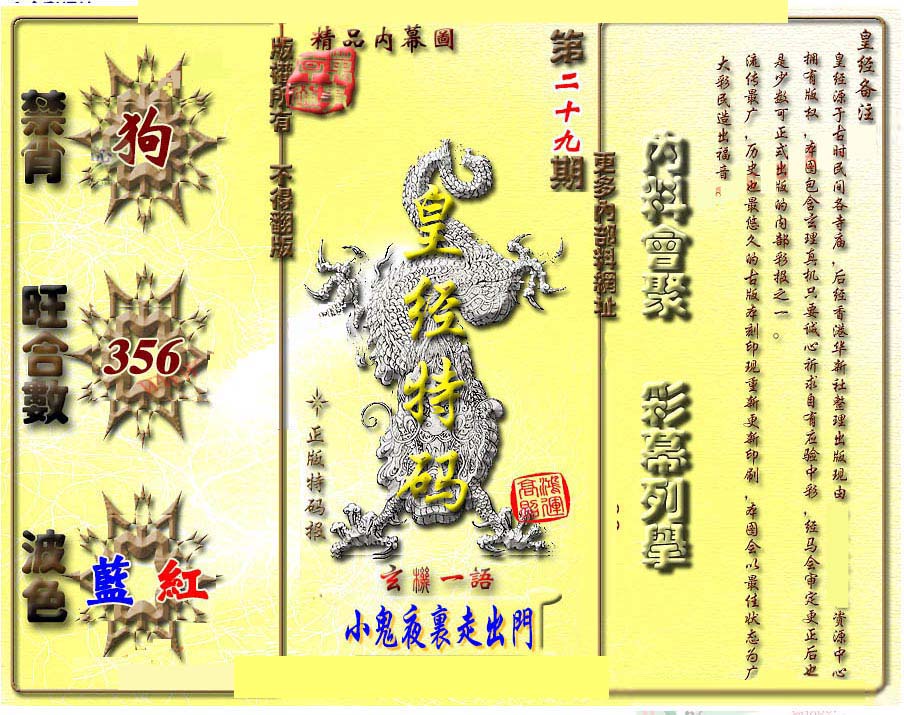 禁肖
狗
旺合數
356
波色
藍 紅
版權所有 不得翻版
精品内幕圖
皇经特码
正版特码报
鴻運高照
玄機一語
小鬼夜裏走出門
第二十九期
更多内部料網址
内料會聚 彩幕列舉
皇经备注
皇经源于古时民间各寺庙,后经香港华新社整理出版现由 资源中心
拥有版权,本图包含玄理真机只要诚心祈求自有应验中彩,经马会审定更正后也
是少数可正式出版的内部彩报之一。
流传最广,历史也最悠久的古版本刻印现重新更新印刷,本图会以最佳状态为广
大彩民造出福音